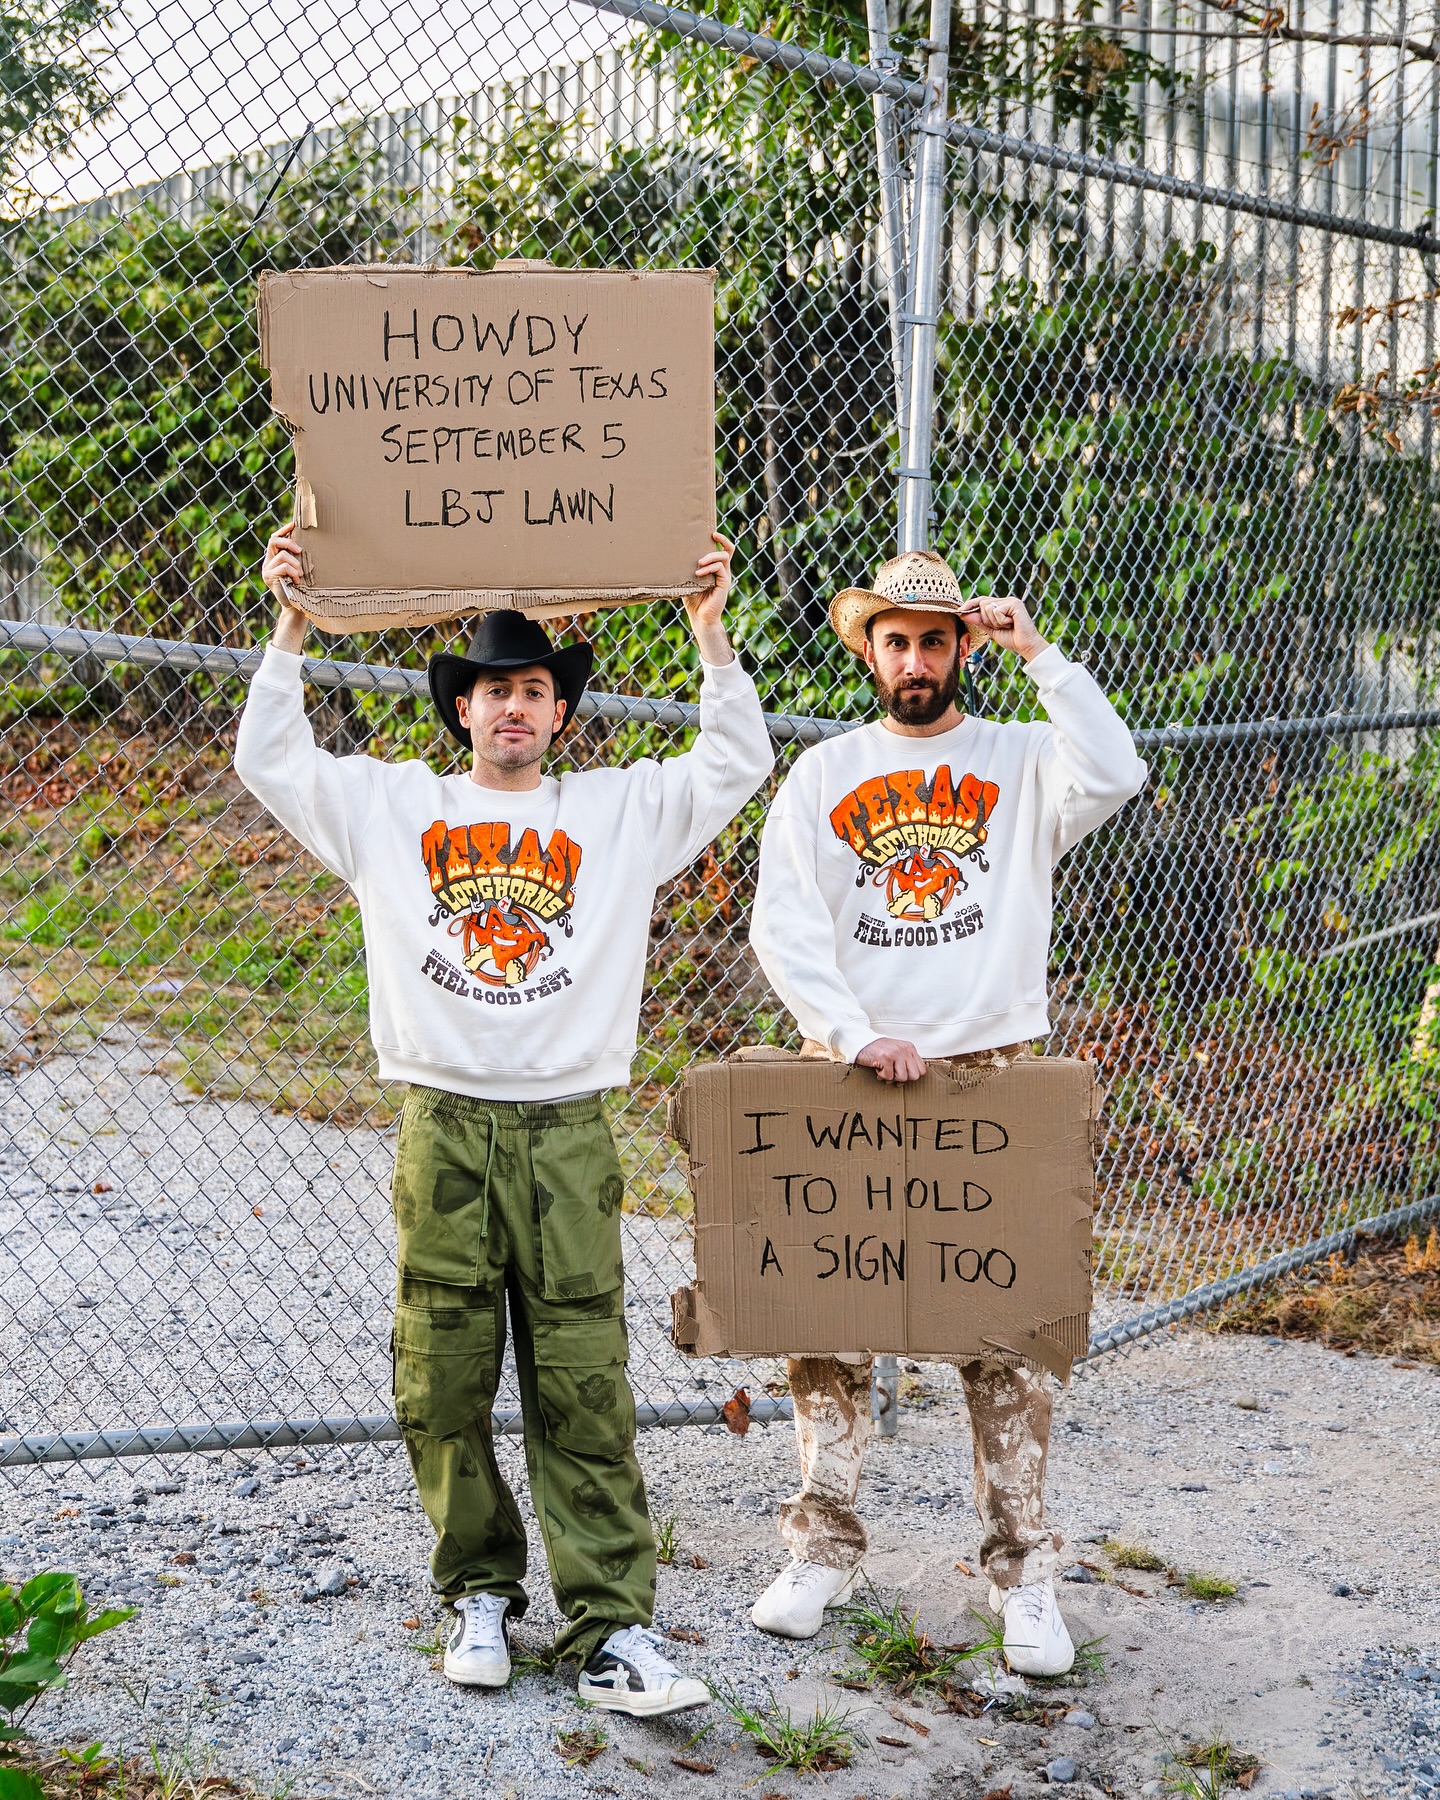 HOWDY
UNIVERSITY OF TEXAS
SEPTEMBER 5
LBJ LAWN
TEXAS!
LONGHORNS
HOLLISTER 2025
FEEL GOOD FEST
TEXAS!
LONGHORNS
HOLLISTER 2025
FEEL GOOD FEST
I WANTED
TO HOLD
A SIGN TOO